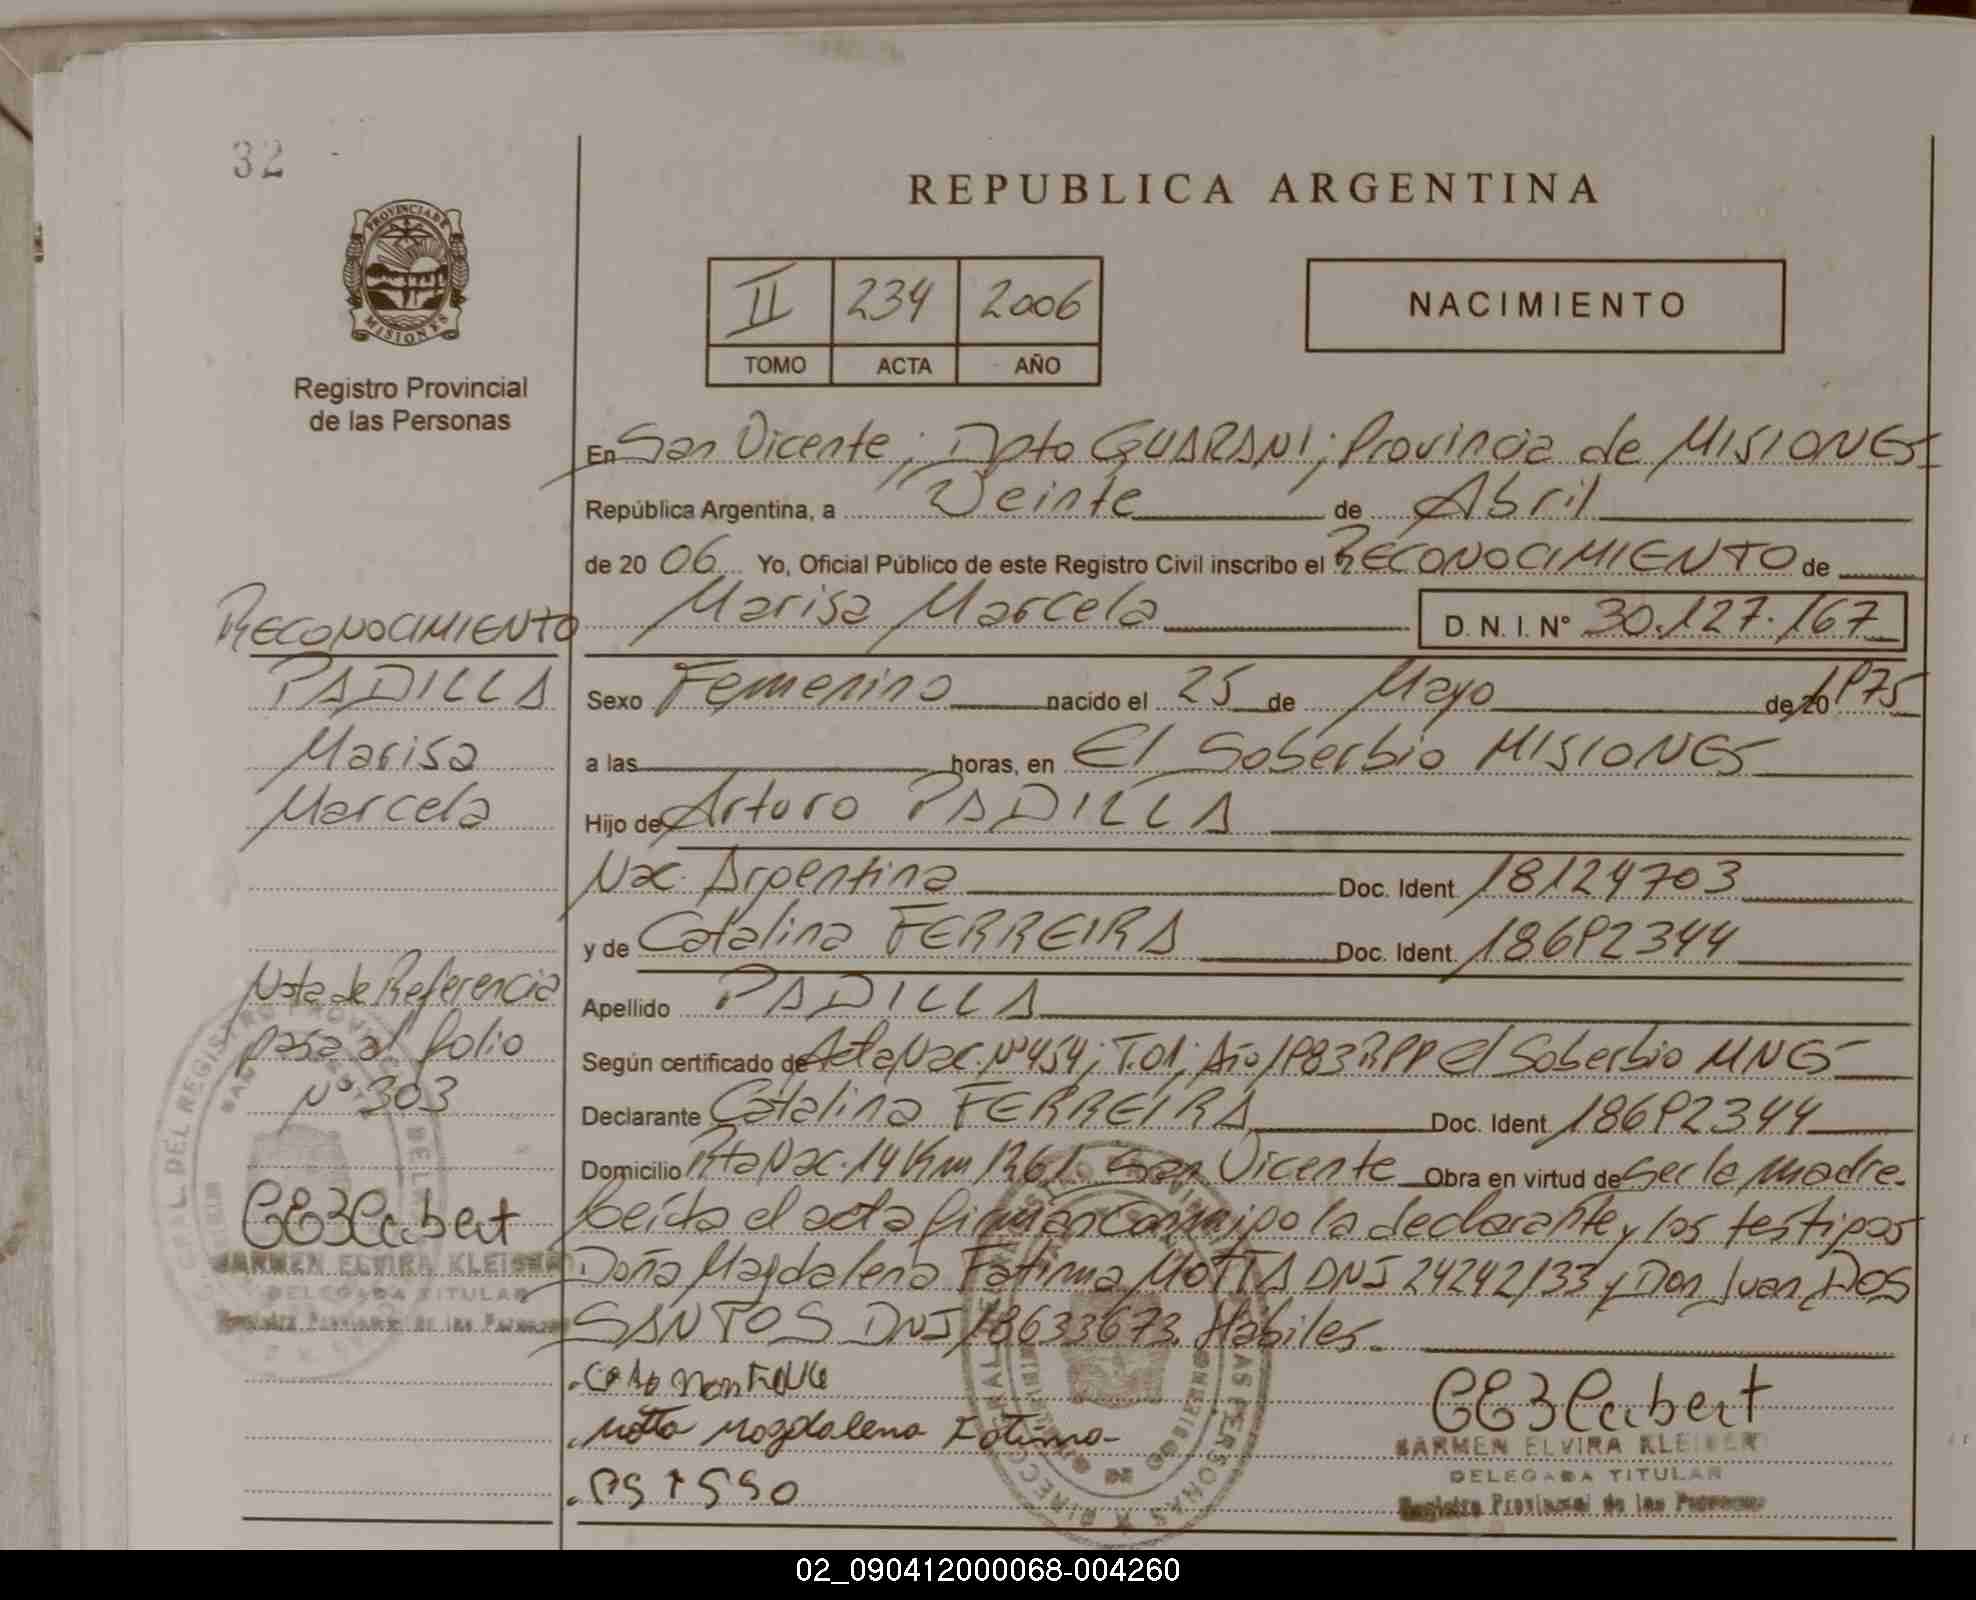 32
REPUBLICA ARGENTINA
PROVINCIA DE
MISIONES
Registro Provincial
de las Personas
II 234 2006
TOMO ACTA AÑO
NACIMIENTO
En San Vicente; Dpto GUARANI; Provincia de MISIONES
República Argentina, a Veinte de Abril
de 2006 Yo, Oficial Público de este Registro Civil inscribo el RECONOCIMIENTO de
Marisa Marcela D.N.I. N° 30.127.167
RECONOCIMIENTO
PADILLA
Marisa
Marcela
Sexo Femenino nacido el 25 de Mayo de 20 1975
a las horas, en El Soberbio MISIONES
Hijo de Arturo PADILLA
Nac. Argentina Doc. Ident. 18124703
y de Catalina FERREIRA Doc. Ident. 18692344
Apellido PADILLA
Según certificado de Acta Nac. N° 454; T.01; Año 1983 RPP El Soberbio MNES
Declarante Catalina FERREIRA Doc. Ident. 18692344
Domicilio Rta Nac. 14 Km 1261 San Vicente Obra en virtud de ser la madre.
Leída el acta firman conmigo la declarante y los testigos
Doña Magdalena Fatima MOTTA DNI 24242133 y Don Juan DOS
SANTOS DNI 18633673. Habiles.
Nota de Referencia
pasa al folio
N° 303
CARMEN ELVIRA
DELEGADA TITULAR
Registro Provincial de las Personas
Motta Magdalena Fatima
CARMEN ELVIRA
DELEGADA TITULAR
Registro Provincial de las Personas
02_090412000068-004260